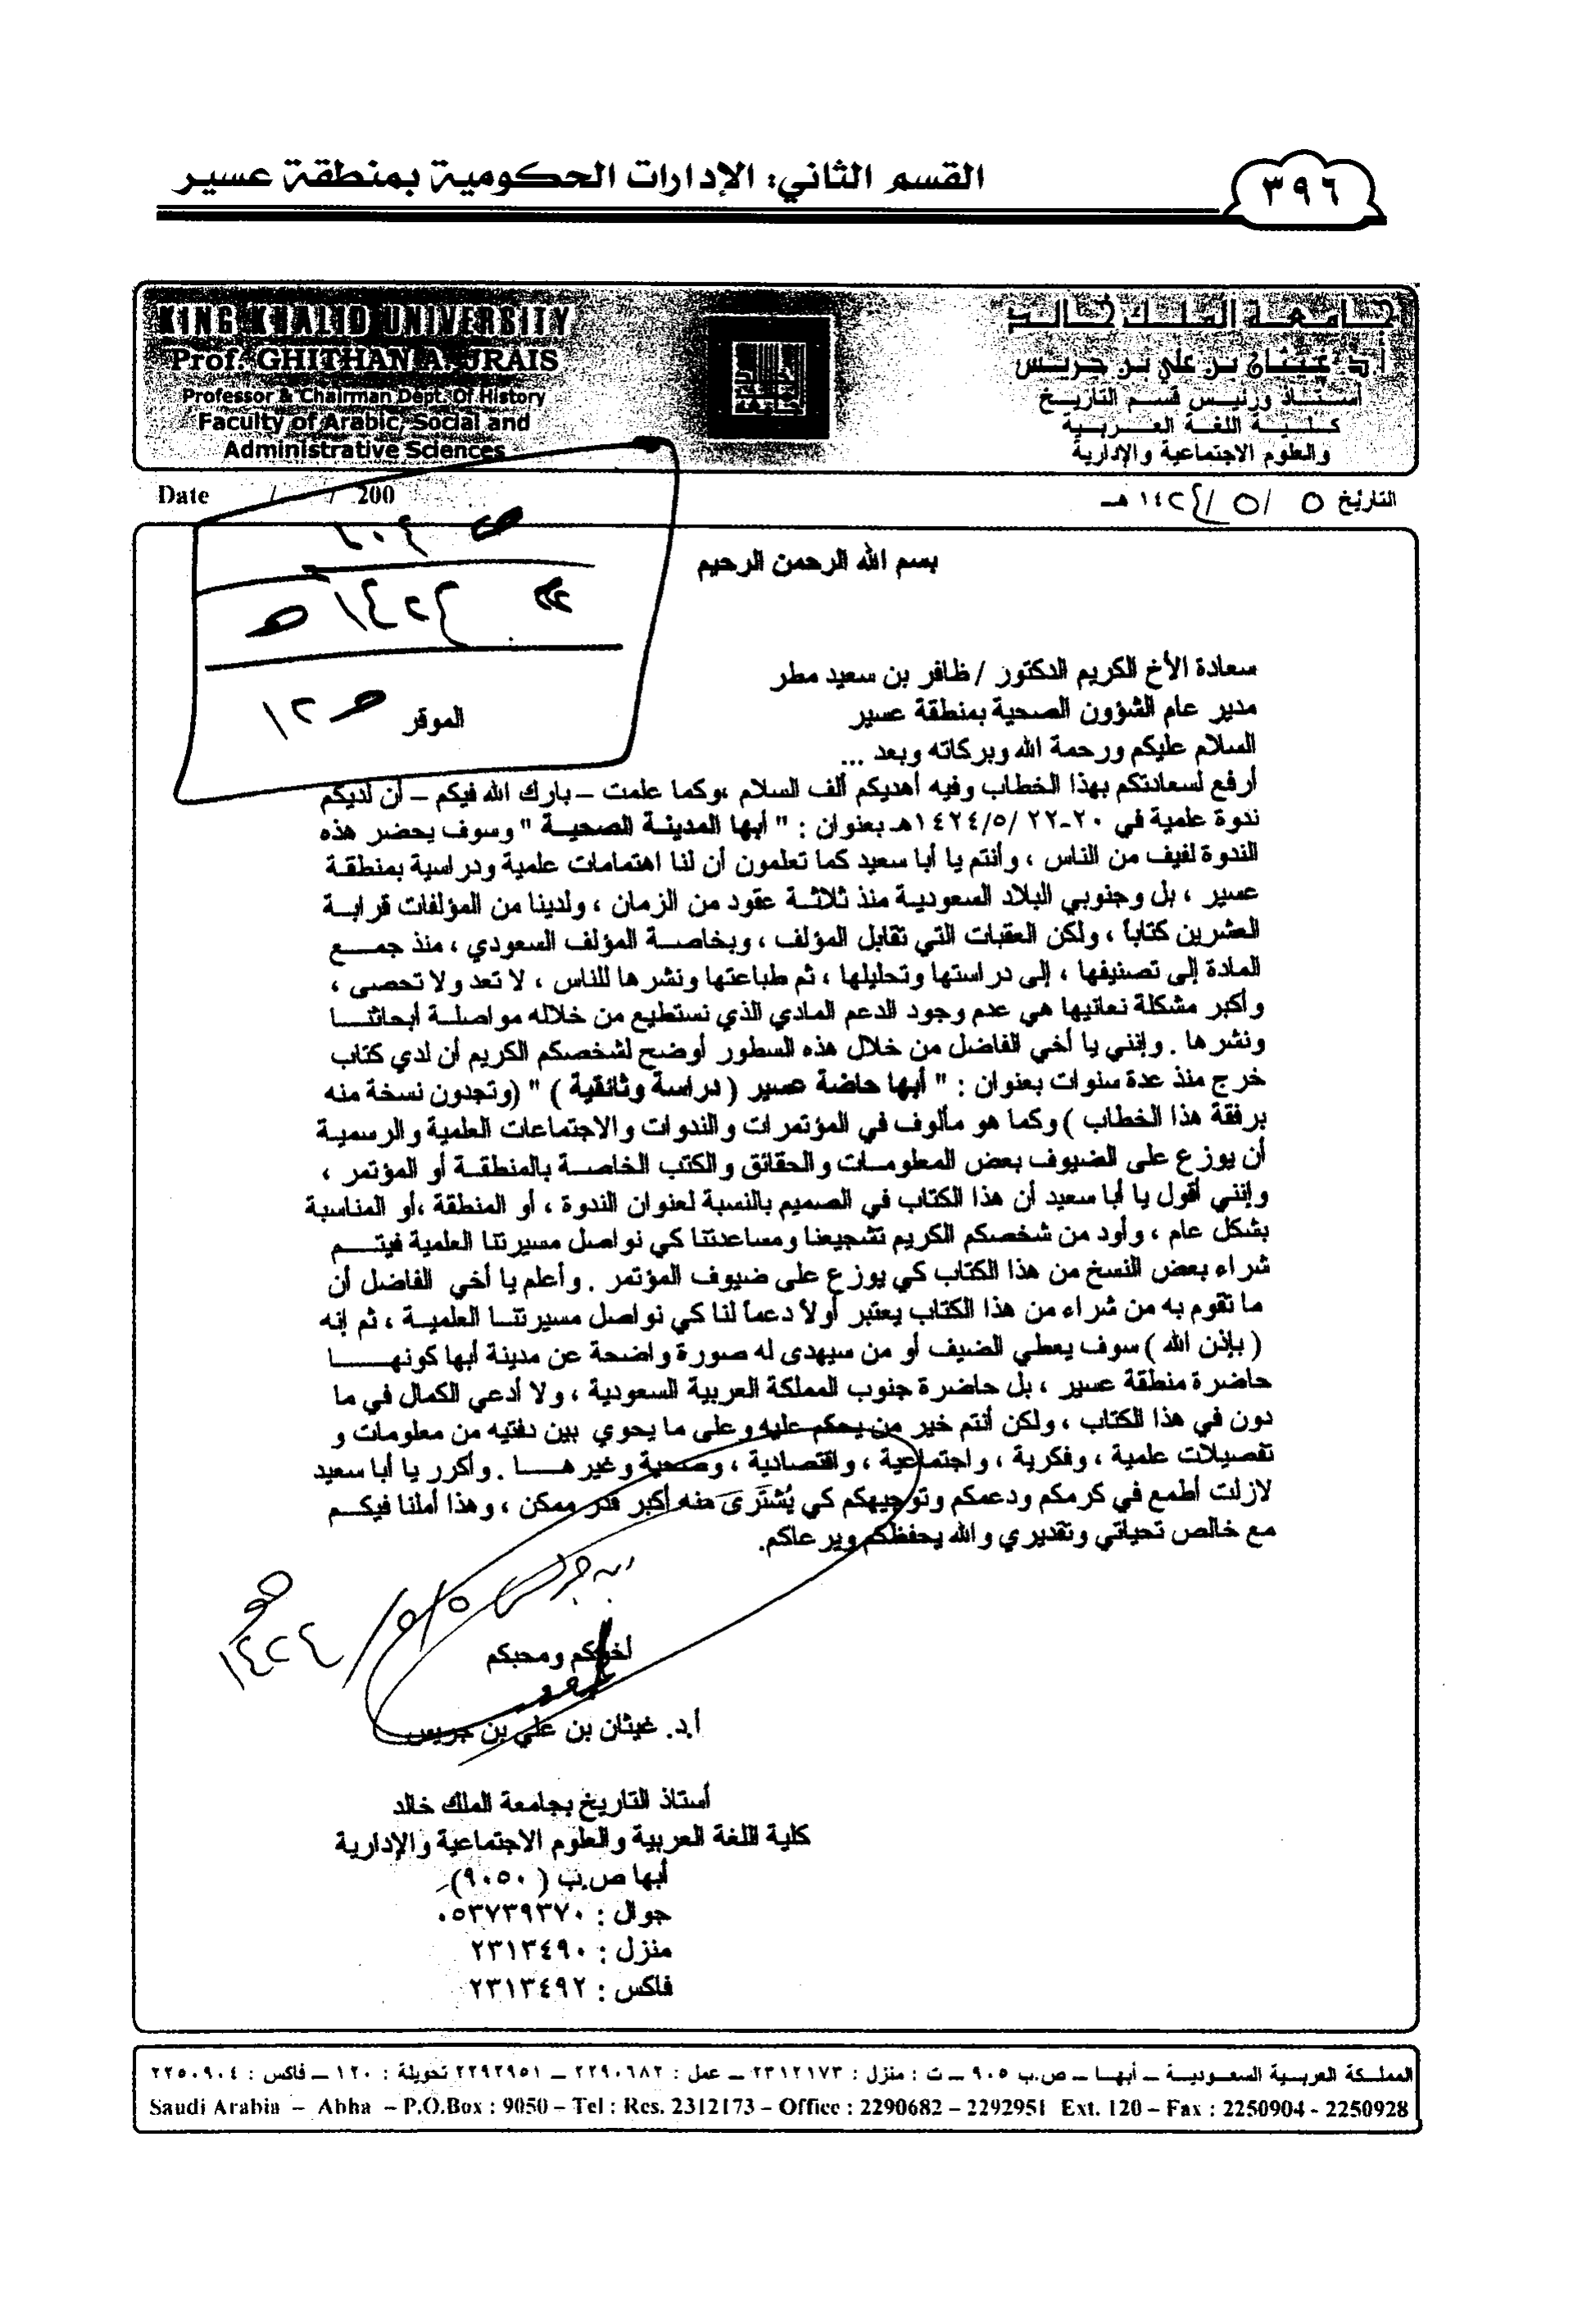 القسم الثاني: الإدارات الحكومية بمنطقة عسير
٣٩٦
KING KHALID UNIVERSITY
Prof. GHITHAN A. JRAIS
Professor & Chairman Dept. Of History
Faculty of Arabic, Social and
Administrative Sciences
جامعة الملك خالد
أ.د. غيثان بن علي بن جريس
أستاذ ورئيس قسم التاريخ
كلية اللغة العربية
والعلوم الاجتماعية والإدارية
Date / / 200
التاريخ ٥ /٥ /١٤٢٤ هـ
بسم الله الرحمن الرحيم
١٤٢٤ هـ
سعادة الأخ الكريم الدكتور / ظافر بن سعيد مطر
مدير عام الشؤون الصحية بمنطقة عسير الموقر
السلام عليكم ورحمة الله وبركاته وبعد ...
أرفع لسعادتكم بهذا الخطاب وفيه أهديكم ألف السلام ،وكما علمت – بارك الله فيكم – أن لديكم
ندوة علمية في ٢٠-٢٢ /١٤٢٤/٥هـ بعنوان : " أبها المدينة الصحية " وسوف يحضر هذه
الندوة لفيف من الناس ، وأنتم يا أبا سعيد كما تعلمون أن لنا اهتمامات علمية ودراسية بمنطقة
عسير ، بل وجنوبي البلاد السعودية منذ ثلاثة عقود من الزمان ، ولدينا من المؤلفات قرابة
العشرين كتاباً ، ولكن العقبات التي تقابل المؤلف ، وبخاصة المؤلف السعودي ، منذ جمع
المادة إلى تصنيفها ، إلى دراستها وتحليلها ، ثم طباعتها ونشرها للناس ، لا تعد ولا تحصى ،
وأكبر مشكلة نعانيها هي عدم وجود الدعم المادي الذي نستطيع من خلاله مواصلة أبحاثنا
ونشرها . وإنني يا أخي الفاضل من خلال هذه السطور أوضح لشخصكم الكريم أن لدي كتاب
خرج منذ عدة سنوات بعنوان : " أبها حاضة عسير ( دراسة وثائقية ) " (وتجدون نسخة منه
برفقة هذا الخطاب ) وكما هو مألوف في المؤتمرات والندوات والاجتماعات العلمية والرسمية
أن يوزع على الضيوف بعض المعلومات والحقائق والكتب الخاصة بالمنطقة أو المؤتمر ،
وإنني أقول يا أبا سعيد أن هذا الكتاب في الصميم بالنسبة لعنوان الندوة ، أو المنطقة ،أو المناسبة
بشكل عام ، وأود من شخصكم الكريم تشجيعنا ومساعدتنا كي نواصل مسيرتنا العلمية فيتم
شراء بعض النسخ من هذا الكتاب كي يوزع على ضيوف المؤتمر . وأعلم يا أخي الفاضل أن
ما تقوم به من شراء من هذا الكتاب يعتبر أولاً دعماً لنا كي نواصل مسيرتنا العلمية ، ثم إنه
( بإذن الله ) سوف يعطي الضيف أو من سيهدى له صورة واضحة عن مدينة أبها كونها
حاضرة منطقة عسير ، بل حاضرة جنوب المملكة العربية السعودية ، ولا أدعي الكمال في ما
دون في هذا الكتاب ، ولكن أنتم خير من يحكم عليه وعلى ما يحوي بين دفتيه من معلومات و
تفصيلات علمية ، وفكرية ، واجتماعية ، واقتصادية ، وصحية وغيرها . وأكرر يا أبا سعيد
لازلت أطمع في كرمكم ودعمكم وتوجيهكم كي يُشتَرَى منه أكبر قدر ممكن ، وهذا أملنا فيكم
مع خالص تحياتي وتقديري والله يحفظكم ويرعاكم.
بن جريس ٥/٥/ ١٤٢٤ هـ
أخوكم ومحبكم
أ.د. غيثان بن علي بن جريس
أستاذ التاريخ بجامعة الملك خالد
كلية اللغة العربية والعلوم الاجتماعية والإدارية
أبها ص.ب ( ٩٠٥٠)
جوال : ٠٥٣٧٣٩٣٧٠
منزل : ٢٣١٣٤٩٠
فاكس : ٢٣١٣٤٩٢
المملكة العربية السعودية – أبها – ص.ب ٩٠٥ – ت : منزل : ٢٣١٢١٧٣ – عمل : ٢٢٩٠٦٨٢ – ٢٢٩٢٩٥١ تحويلة : ١٢٠ – فاكس : ٢٢٥٠٩٠٤
Saudi Arabia – Abha – P.O.Box : 9050 – Tel : Res. 2312173 – Office : 2290682 – 2292951 Ext. 120 – Fax : 2250904 - 2250928